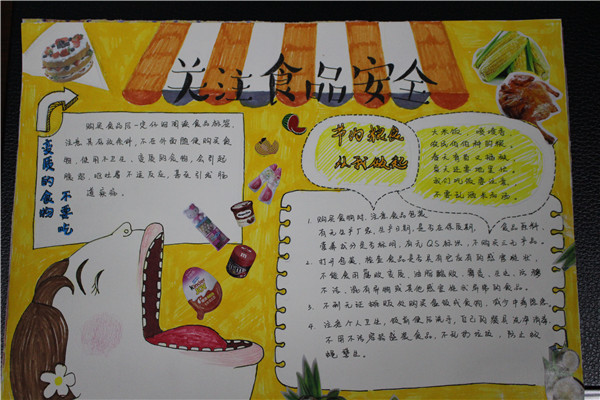 关注食品安全
变质的食物
不要吃
购买食品后一定仔细阅读食品标签,
注意其存放条件,不在外面随便购买食
物,使用不卫生、变质的食物,会引起
腹痛、呕吐等不适反应,甚至引发肠
道疾病。
节约粮食
从我做起
大米饭,喷喷香
农民伯伯种的粮
1、购买食物时,注意食品包装
有无生产厂家、生产日期,是否在保质期,食品原料,
营养成分是否标明,有无QS标识,不购买三无产品。
2、打开包装,检查食品是否具有它应有的感官性状,
不能食用腐败变质、油脂酸败、霉变、生虫、
不洁、混有异物或其他感官性状异常的食物。
3、不到无证摊贩处购买食物,减少中毒隐患。
4、注意个人卫生,饭前便后洗手,自己的餐具洗净消毒
不用不洁容器盛装食品,不乱扔垃圾,防止蚊
蝇孳生。